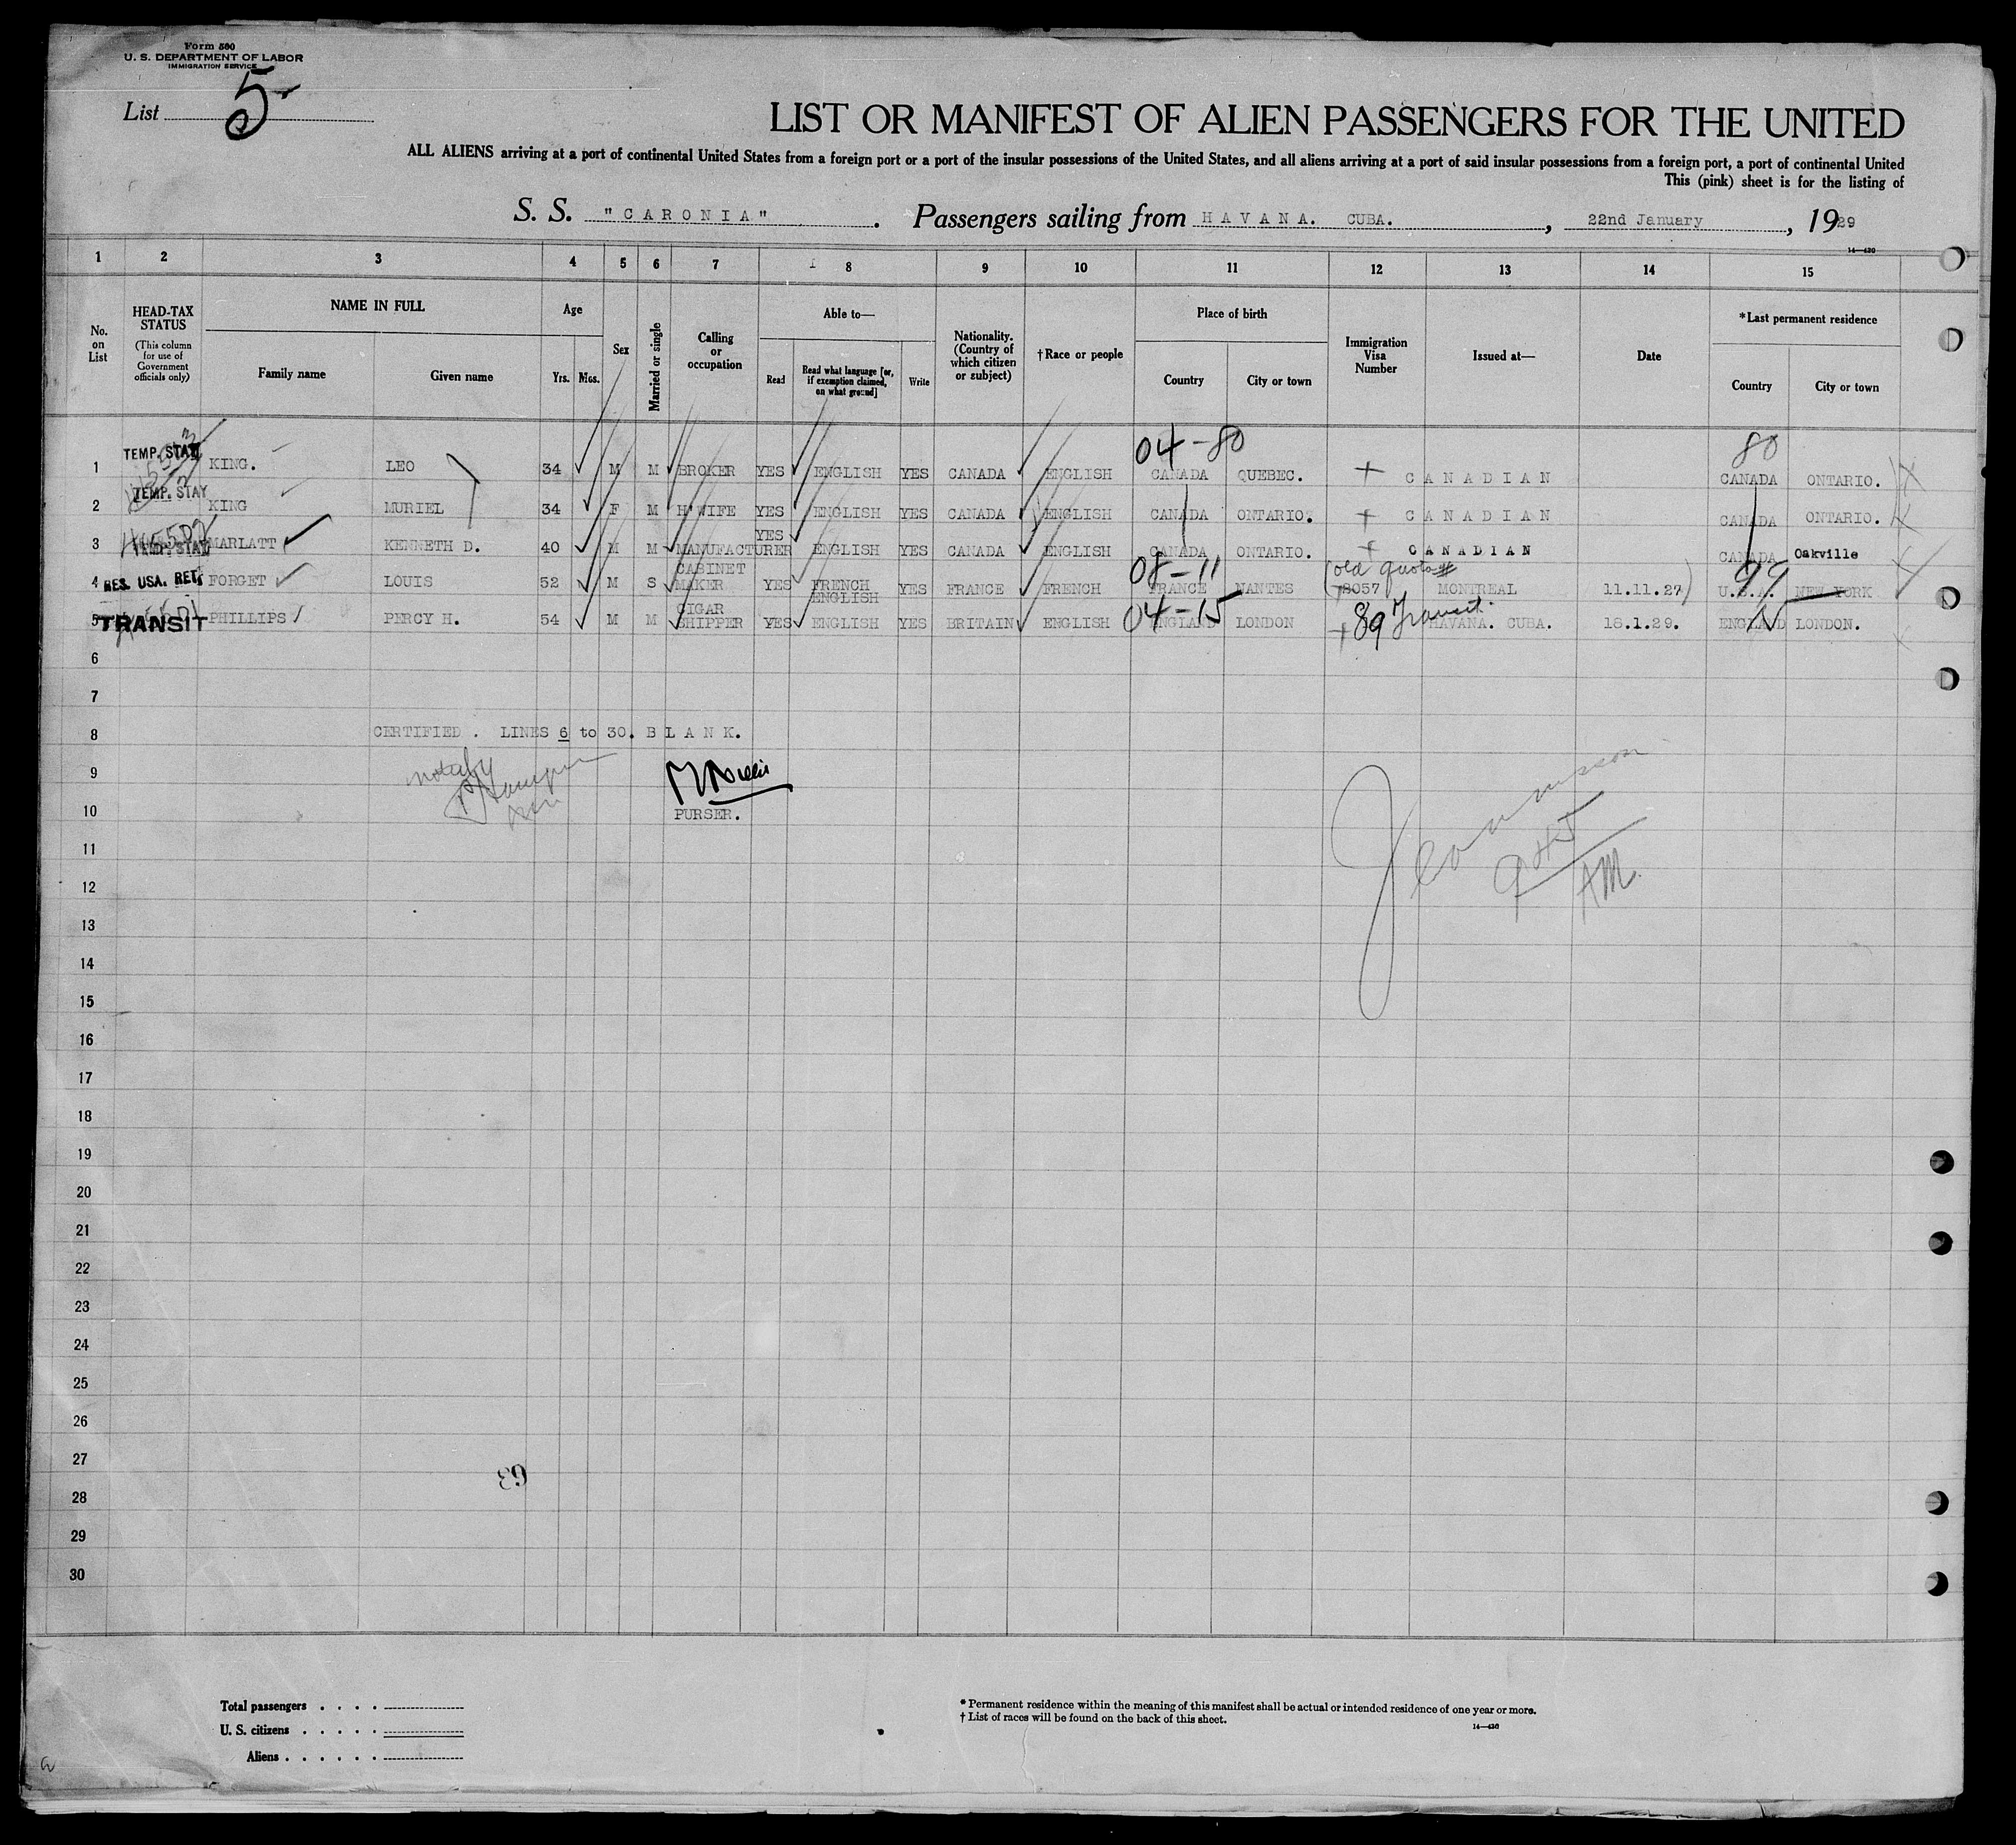 Form 500
U. S. DEPARTMENT OF LABOR
IMMIGRATION SERVICE
List 5
LIST OR MANIFEST OF ALIEN PASSENGERS FOR THE UNITED
ALL ALIENS arriving at a port of continental United States from a foreign port or a port of the insular possessions of the United States, and all aliens arriving at a port of said insular possessions from a foreign port, a port of continental United
This (pink) sheet is for the listing of
S. S. "CARONIA". Passengers sailing from HAVANA. CUBA., 22nd January, 1929
14—430
1 2 3 4 5 6 7 8 9 10 11 12 13 14 15
No. on List
HEAD-TAX STATUS
(This column for use of Government officials only)
NAME IN FULL
Family name
Given name
Age
Yrs. Mos.
Sex
Married or single
Calling or occupation
Able to—
Read
Read what language [or, if exemption claimed, on what ground]
Write
Nationality. (Country of which citizen or subject)
†Race or people
Place of birth
Country
City or town
Immigration Visa Number
Issued at—
Date
*Last permanent residence
Country
City or town
04-80 80
1 TEMP. STAY KING. LEO 34 M M BROKER YES ENGLISH YES CANADA ENGLISH CANADA QUEBEC. CANADIAN CANADA ONTARIO.
2 TEMP. STAY KING MURIEL 34 F M H'WIFE YES ENGLISH YES CANADA ENGLISH CANADA ONTARIO. CANADIAN CANADA ONTARIO.
3 TEMP. STAY MARLATT KENNETH D. 40 M M MANUFACTURER YES ENGLISH YES CANADA ENGLISH CANADA ONTARIO. CANADIAN CANADA Oakville
08-11 (old quota # 99
4 RES. USA. RET. FORGET LOUIS 52 M S CABINET MAKER YES FRENCH ENGLISH YES FRANCE FRENCH FRANCE NANTES 8057 MONTREAL 11.11.27) U.S.A. NEW YORK
04-15 89 Transit
5 TRANSIT PHILLIPS PERCY H. 54 M M CIGAR SHIPPER YES ENGLISH YES BRITAIN ENGLISH ENGLAND LONDON HAVANA. CUBA. 18.1.29. ENGLAND LONDON.
6
7
8 CERTIFIED. LINES 6 to 30. BLANK.
9
10 PURSER.
11
12 AM.
13
14
15
16
17
18
19
20
21
22
23
24
25
26
27
63
28
29
30
Total passengers . . . .
U. S. citizens . . . . .
Aliens . . . . . .
* Permanent residence within the meaning of this manifest shall be actual or intended residence of one year or more.
† List of races will be found on the back of this sheet.
14—430